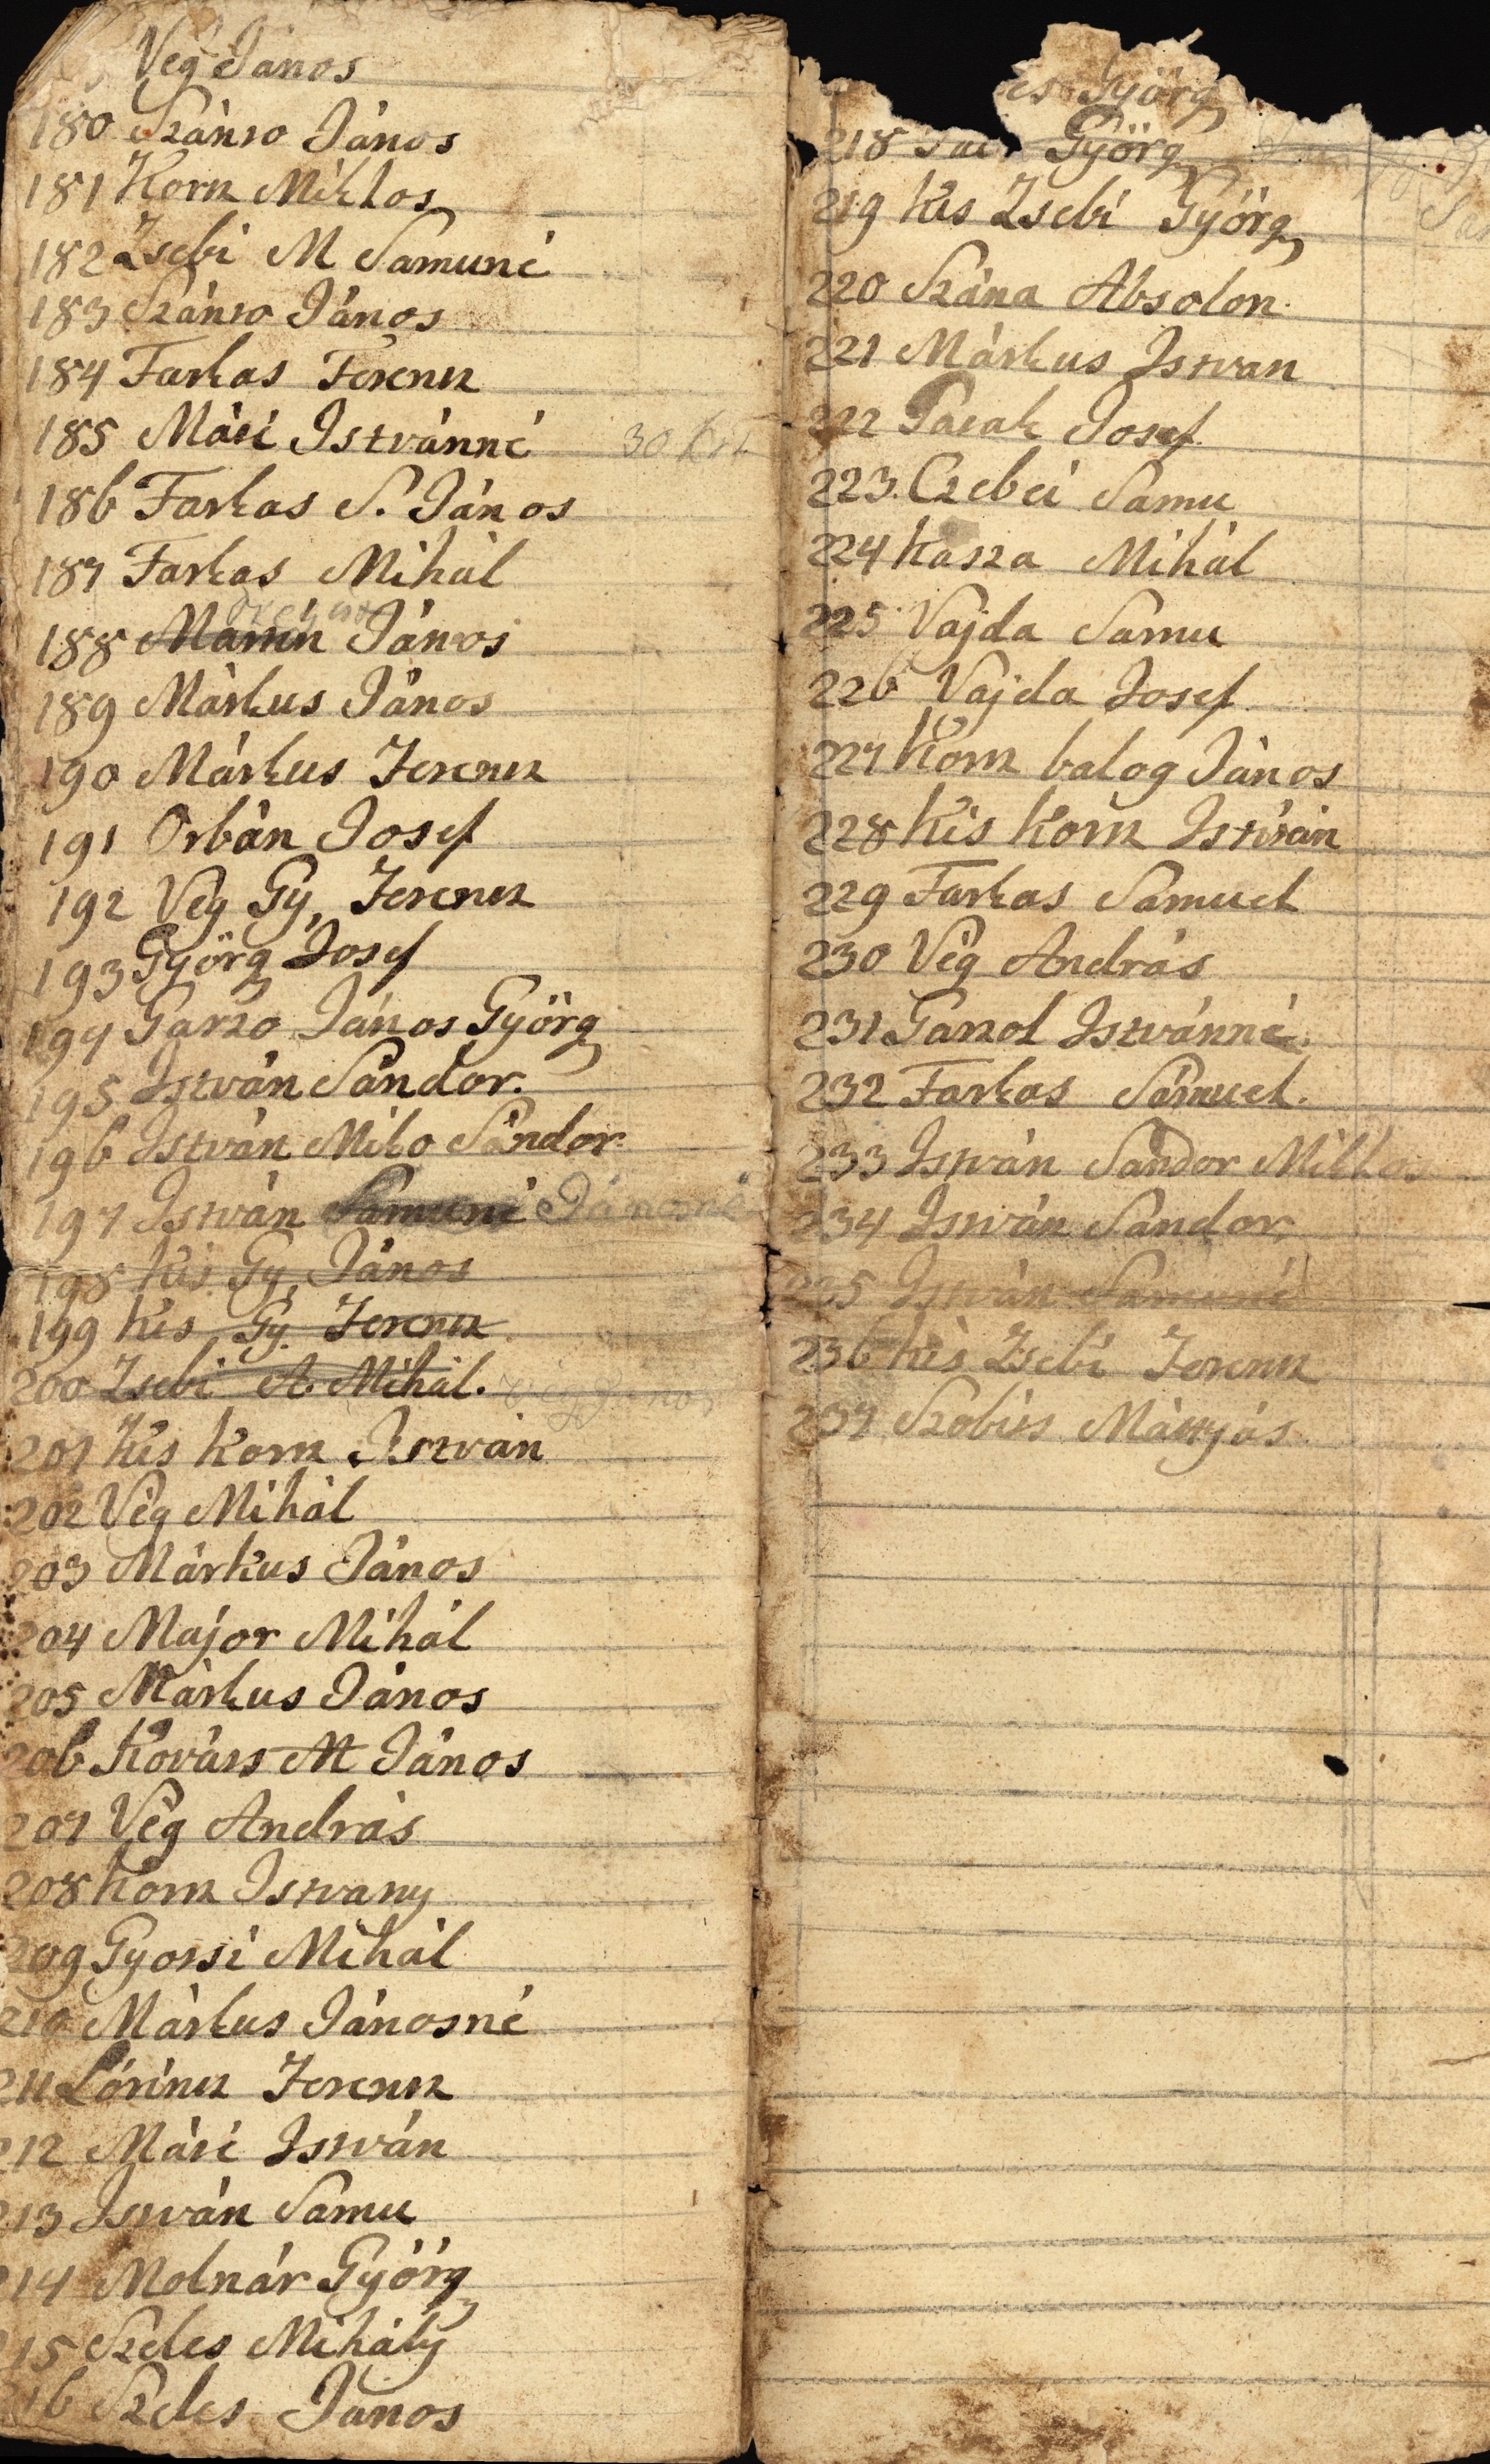 Vég János
180 Szántó János
181 Korcz Miklos
182 Zsebi M Samuné
183 Szántó János
184 Farkas Ferencz
185 Mári Istvánné 30 kr
186 Farkas S. János
187 Farkas Mihál
188 János
189 Márkus János
190 Márkus Ferencz
191 Orbán Josef
192 Vég Gy, Ferencz
193 Györg Josef
194 Garzo János Györg
195 István Sándor.
196 István Miko Sándor
197 István Samuné Jánosné
198 Kis Gy, János
199 Kis Gy. Ferencz
200 Zsebi A. Mihál. Vég János
201 Kis Korcz István
202 Vég Mihál
203 Márkus János
204 Major Mihál
205 Márkus János
206 Kováts M János
207 Vég András
208 Korcz Istvany
209 Gyorsi Mihál
210 Márkus Jánosné
211 Lórincz Ferencz
212 Mári István
213 István Samu
214 Molnár György
215 Szeles Mihály
216 Szeles János
Györg
218 Györg
219 Kis Zsebi Györg
220 Szána Absolon.
221 Márkus Istvan
222 Josef
223. Czebei Samu
224 Kasza Mihál
225 Vajda Samu
226 Vajda Josef
227 Korcz balog János
228 Kis Korcz István
229 Farkas Samuel
230 Vég András
231 Istvánné.
232 Farkas Sámuel.
233 István Sandor Miklos
234 István Sandor
235 István Samuné
236 Kis Zsebi Ferencz
237 Mátyás